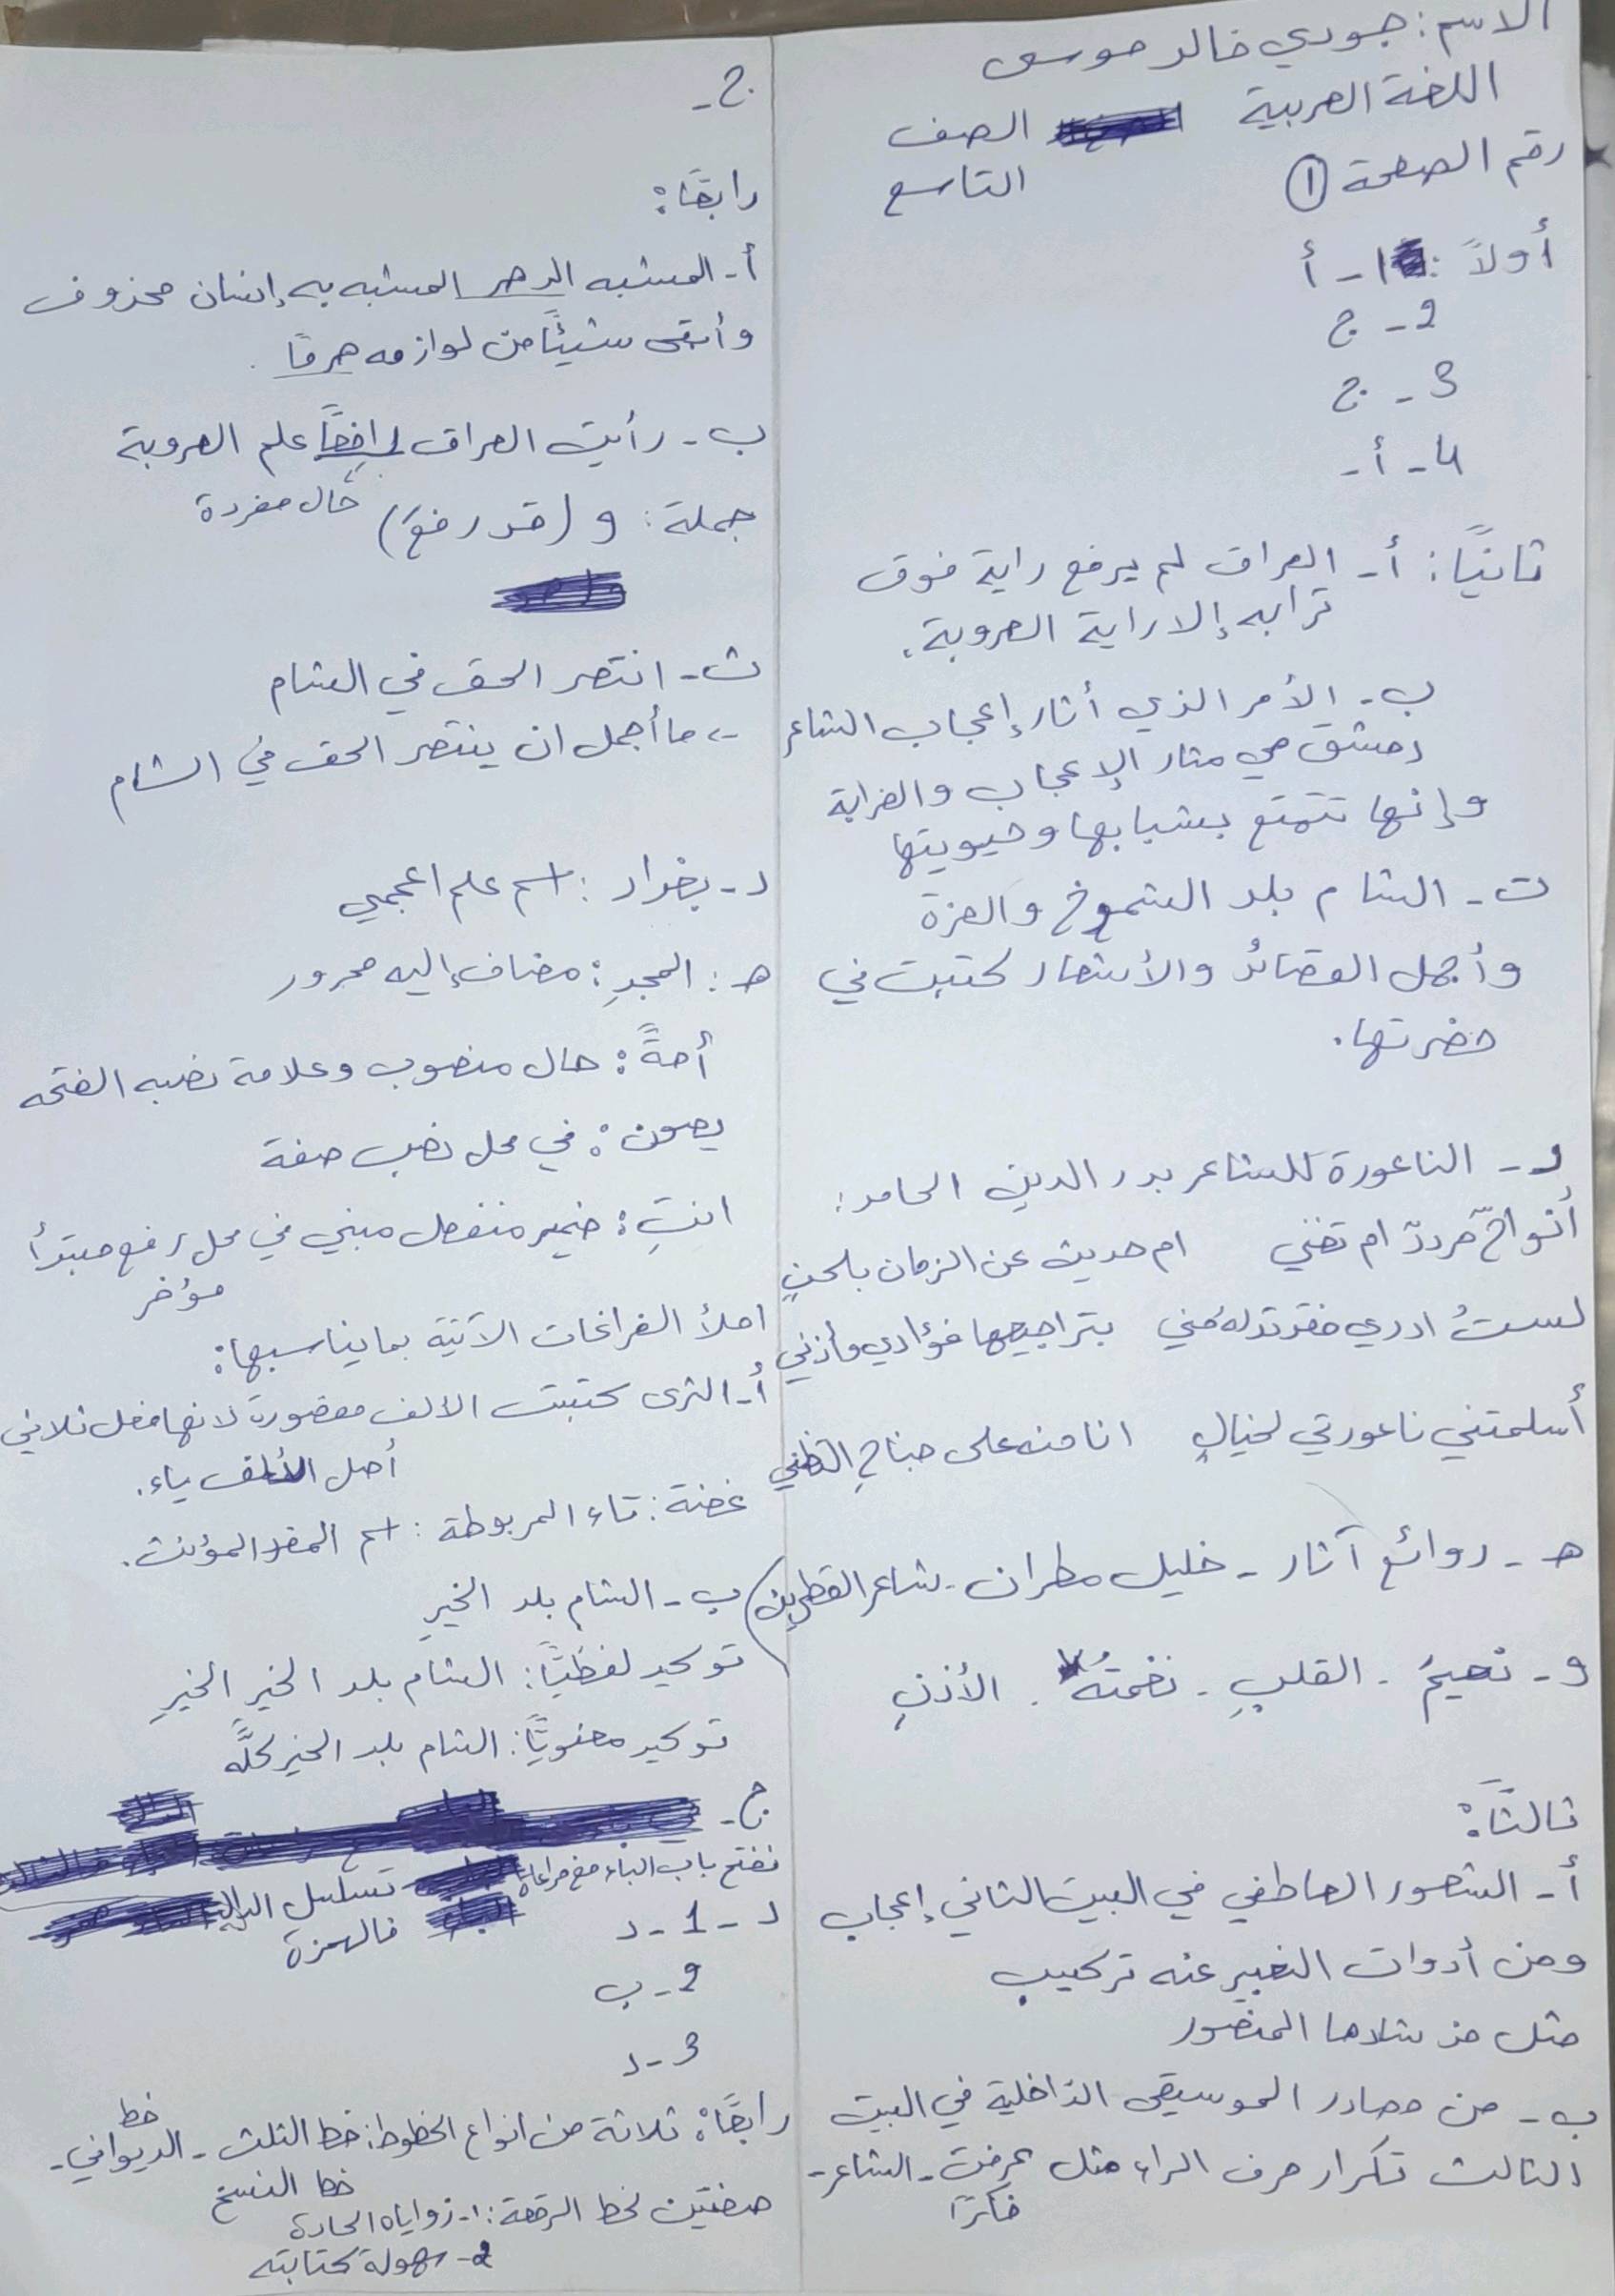 الاسم: جودي خالد موسى
اللغة العربية الصف
رقم الصفحة ① التاسع
أولاً: 1- أ
2- ج
3- ج
4- أ-
ثانيًا: أ- العراق لم يرفع راية فوق
ترابه إلا راية العروبة.
ب- الأمر الذي أثار إعجاب الشاعر
دمشق هي مثار الإعجاب والغرابة
وإنها تتمتع بشبابها وحيويتها
ت- الشام بلد الشموخ والعزة
وأجمل القصائد والأشعار كتبت في
حضرتها.
د- الناعورة للشاعر بدر الدين الحامد:
أنواحٌ مرددّ ام تغني ام حديث عن الزمان بلحنٍ
لستُ ادري فقد تدلهُ مني بتراجيعها فؤادي وأذني
أسلمتني ناعورتي لخيالٍ انا منه على جناحِ التظني
هـ- روائع آثار - خليل مطران - شاعر القطرين
و- نعيمُ - القلبِ - نغمتهُ - الأذنِ
ثالثًا:
أ- الشعور العاطفي في البيت الثاني إعجاب
ومن أدوات التعبير عنه تركيب
مثل من شلاها المنضور
ب- من مصادر الموسيقى الداخلية في البيت
الثالث تكرار حرف الراء مثل عرفت - الشاعر -
فكرًا
ج-
رابعًا:
أ- المشبه الدهر المشبه به إنسان محذوف
وأبقى شيئًا من لوازمه هرمًا.
ب- رأيت العراق رافعًا علم العروبة
حال مفردة
جملة: و (قد رفعَ)
ث- انتصر الحق في الشام
ما أجمل ان ينتصر الحق في الشام
د- بغداد: اسم علم اعجمي
هـ: المجدِ: مضاف إليه مجرور
أمةً: حال منصوب وعلامة نصبه الفتحه
يصون: في محل نصب صفة
انتِ: ضمير منفصل مبني في محل رفع مبتدأ
مؤخر
املأ الفراغات الآتية بما يناسبها:
أ- الثرى كتبت الالف مقصورة لانها فعل ثلاثي
أصل الألف ياء.
غضة: تاء المربوطة: اسم المفرد المؤنث.
ب- الشام بلد الخيرِ
توكيد لفظيًا: الشام بلد الخيرِ الخيرِ
توكيد معنويًا: الشام بلد الخير كلَّه
ج-
نفتح باب الباء مع مراعاة تسلسل الدال
فالهمزة
د- 1- د
2- ب
3- د
رابعًا: ثلاثة من انواع الخطوط: خط الثلث - خط الديواني -
خط النسخ
صفتين لخط الرقعة: 1- زواياه الحادة
2- سهولة كتابته